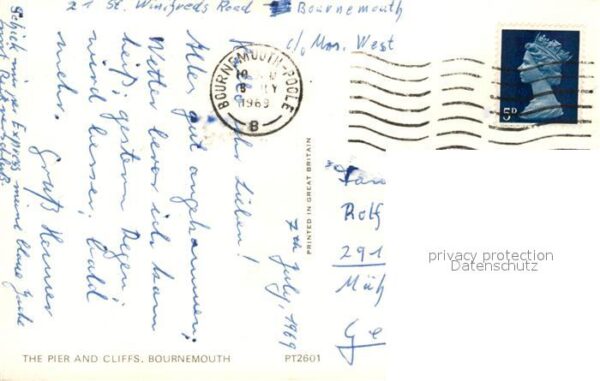 21 St. Winifreds Road Bournemouth
c/o Mrs. West
BOURNEMOUTH-POOLE
1969
B
5D
7th July, 1969
Ihr Lieben!
Alles gut angekommen;
Wetter bevor ich kam
heiß; gestern Regen;
wird besser; bald
mehr.
Gruß Werner
Schick mir per Express meine blaue Jacke
PRINTED IN GREAT BRITAIN
Rolf
291
Müh
Ge
privacy protection
Datenschutz
THE PIER AND CLIFFS, BOURNEMOUTH PT2601